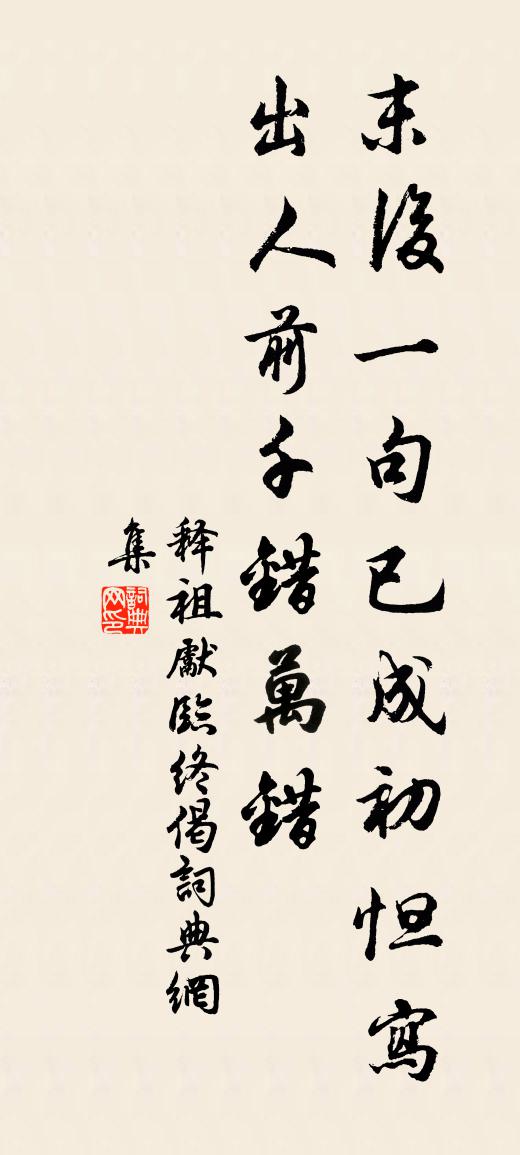 末後一句已成初怛寫
出人前千錯萬錯
释祖獻臨終偈詞典網
集
詞典
网印